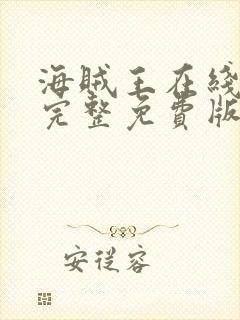 海贼王在綫
完整免費版
安從容